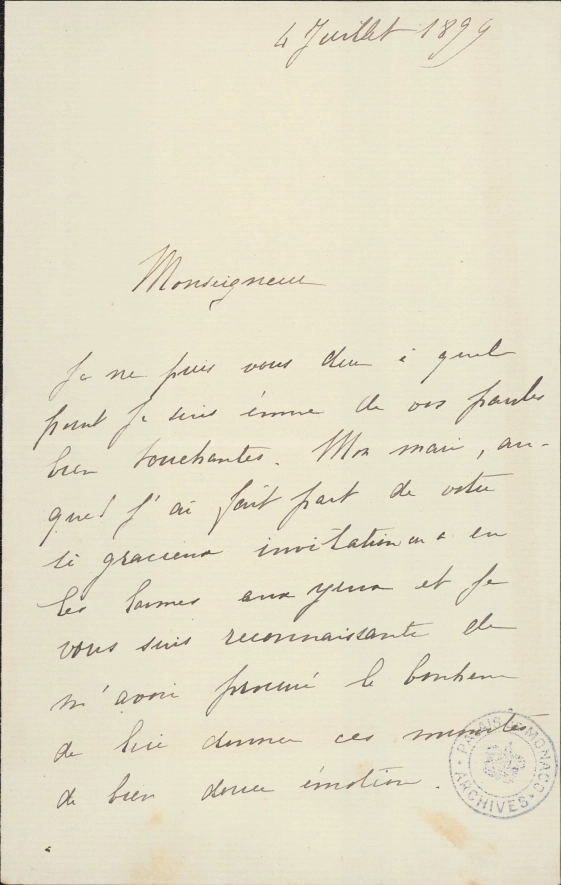 4 Juillet 1899
Monseigneur
Je ne puis vous dire à quel
point je suis émue de vos paroles
bien touchantes. Mon mari, au-
quel j'ai fait part de votre
si gracieux invitation en a eu
les larmes aux yeux et je
vous suis reconnaissante de
m'avoir procuré le bonheur
de lui donner ces minutes
de bien douce émotion.
PALAIS DE MONACO
ARCHIVES